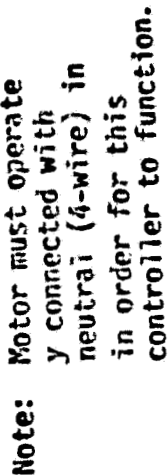 Note: Motor must operate
y connected with
neutral (4-wire) in
in order for this
controller to function.